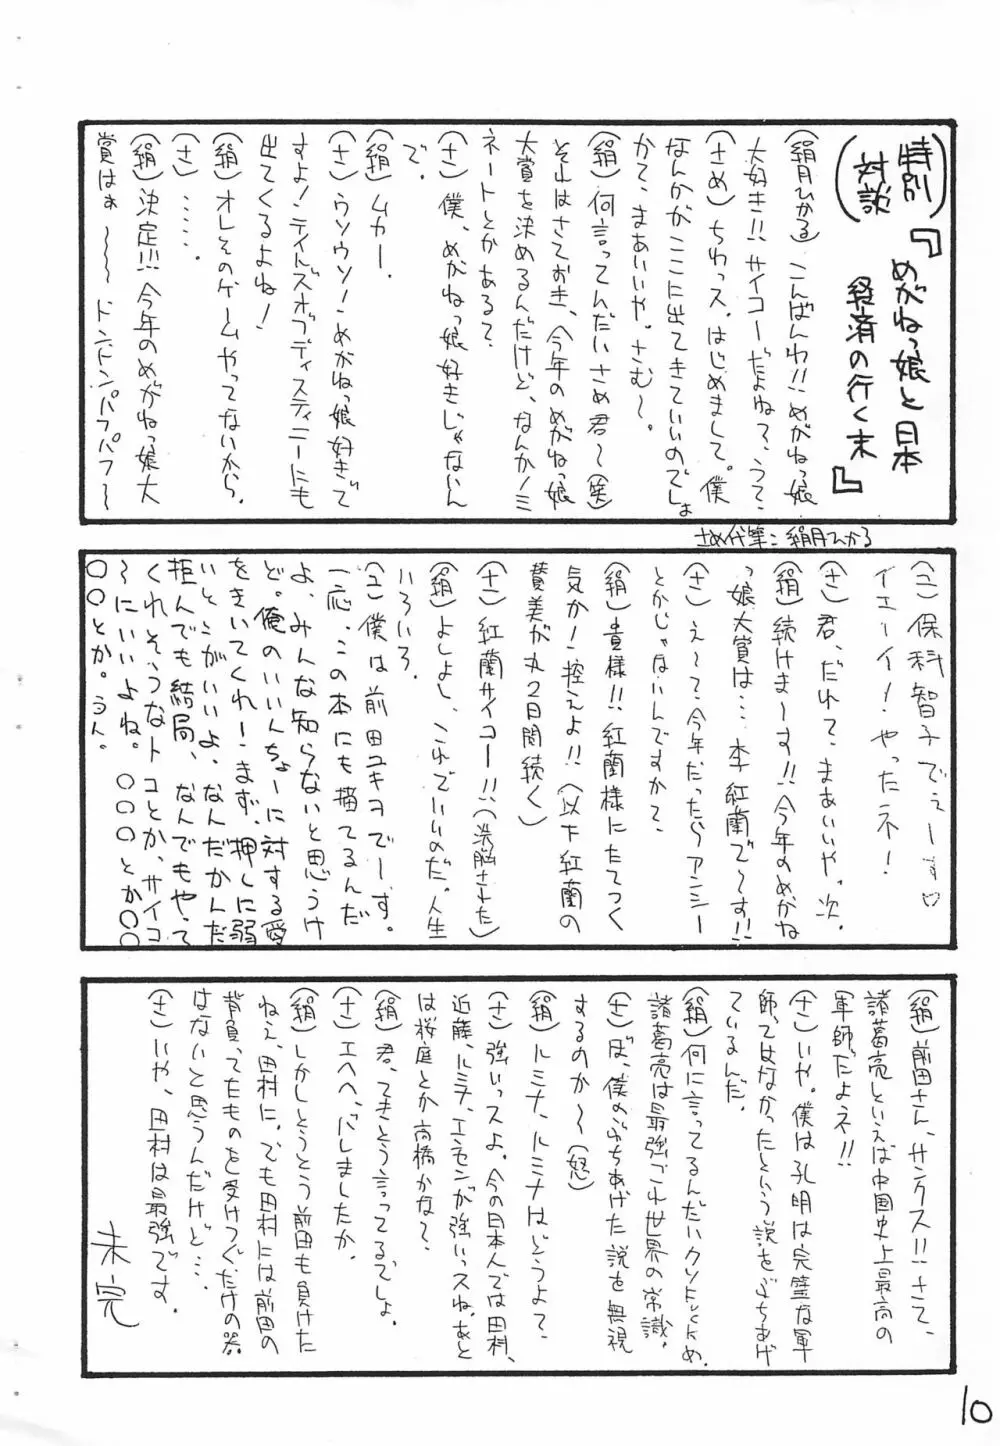 特別
対談
『めがねっ娘と日本
経済の行く末』
(絹月ひかる) こんばんわ!!めがねっ娘
大好き!!サイコーだよねえ、うて、
(さめ) ちわっス。はじめまして。僕
なんかがここに出てきていいのでしょ
かて、まあいいや。さむ〜。
(絹) 何言ってんだいさめ君〜(笑)
それはさておき、今年のめがねっ娘
大賞を決めるんだけど、なんかノミ
ネートとかあるて
(さ) 僕、めがねっ娘好きじゃないん
で。
(絹) ムカー。
(さ) ウソウソ!めがねっ娘好きで
すよ!テイルズオブディスティニーにも
出てくるよね!
(絹) オレそのゲームやってないから。
(さ) ‥‥‥。
(絹) 決定!!!今年のめがねっ娘大
賞はぁ 〜〜〜 ドンドンパフパフ〜
さめ代筆:絹月ひかる
(ユ) 保科智子でぇーす♡
イエーイ!やったネ!
(さ) 君、だれて、まあいいや。次。
(絹) 続けまーす!!今年のめがね
っ娘大賞は‥‥李紅蘭で〜す!!
(さ) え〜て、今年だったらアンシー
とかじゃないんですかて、
(絹) 貴様!!紅蘭様にたてつく
気か!控えよ!!(以下紅蘭の
賛美が丸2日間続く)
(さ) 紅蘭サイコー!!(洗脳された)
(絹) よしよし、これでいいのだ。人生
いろいろ。
(ユ) 僕は前田ユキヲでーす。
一応、この本にも描てるんだ
よ、みんな知らないと思うけ
ど。俺のいいんちょーに対する愛
をきいてくれー!まず、押しに弱
いトコがいいよ、なんだかんだ
拒んでも結局、なんでもやって
くれそうなトコとか、サイコ
〜にいいよね。○○○とか○○
○○とか。うん。
(絹) 前田さん、サンクス!!さて、
諸葛亮といえば中国史上最高の
軍師だよネ!!
(さ) いや。僕は孔明は完璧な軍
師、てはなかったという説をぶちあげ
ているんだ。
(絹) 何に言ってるんだいクソFuckめ。
諸葛亮は最強これ世界の常識。
(さ) ぼ、僕のぶちあげた説を無視
するのか〜(怒)
(絹) ルミナ、ルミナはどうよて、
(さ) 強いっスよ。今の日本人では田村、
近藤、ルミナ、エンセンが強いっスね。あと
は桜庭とか高橋かなて、
(絹) 君、てきとう言ってるでしょ。
(さ) エヘヘ、バレましたか。
(絹) しかしとうとう前田も負けた
ねえ、田村に。でも田村には前田の
背負ってたものを受けつぐだけの器
はないと思うんだけど‥‥
(さ) いや、田村は最強です。
未完
10